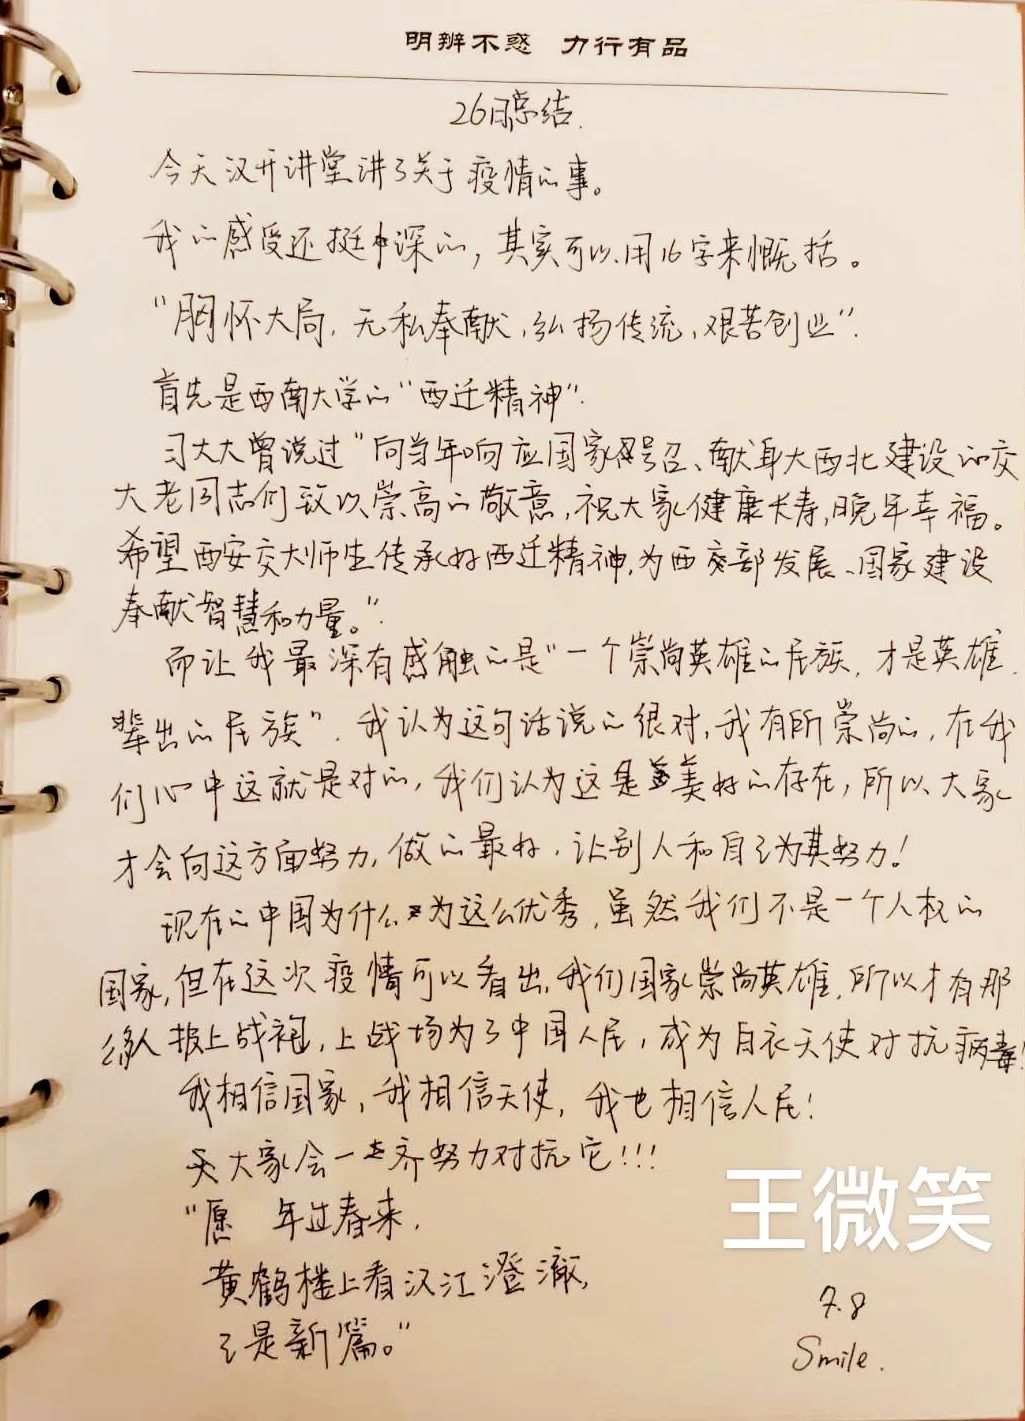 明辨不惑 力行有品
26日总结.
今天汉开讲堂讲了关于疫情的事。
我的感受还挺深的，其实可以用16字来慨括。
"胸怀大局，无私奉献，弘扬传流，艰苦创业".
首先是西南大学的"西迁精神".
习大大曾说过"向当年响应国家号召、献身大西北建设的交
大老同志们致以崇高的敬意，祝大家健康长寿，晚年幸福。
希望西安交大师生传承好西迁精神，为西部发展、国家建设
奉献智慧和力量。"
而让我最深有感触的是"一个崇尚英雄的民族，才是英雄
辈出的民族". 我认为这句话说的很对，我有所崇尚的，在我
们心中这就是对的，我们认为这是美好的存在，所以大家
才会向这方面努力，做的最好，让别人和自己为其努力！
现在的中国为什么为这么优秀，虽然我们不是一个人权的
国家，但在这次疫情可以看出，我们国家崇尚英雄，所以才有那
么多人披上战袍，上战场为了中国人民，成为白衣天使对抗病毒！
我相信国家，我相信天使，我也相信人民！
大家会一齐努力对抗它！！！
"愿 年过春来，
黄鹤楼上看汉江澄澈，
已是新篇。"
王微笑
7.8
Smile.